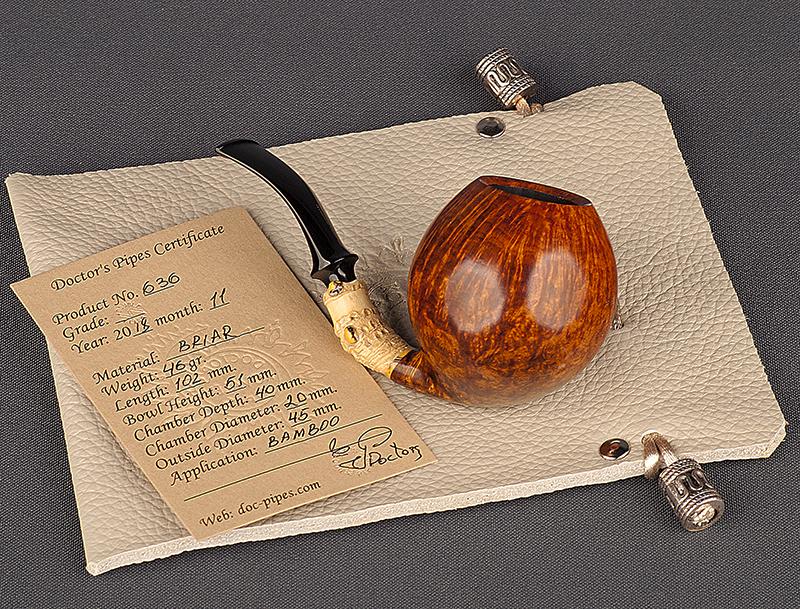 Doctor's Pipes Certificate
Product No. 636
Grade:
Year: 2018 month: 11
Material: BRIAR
Weight: 46 gr.
Length: 102 mm.
Bowl Height: 51 mm.
Chamber Depth: 40 mm.
Chamber Diameter: 20 mm.
Outside Diameter: 45 mm.
Application: BAMBOO
Doctor's
Web: doc-pipes.com